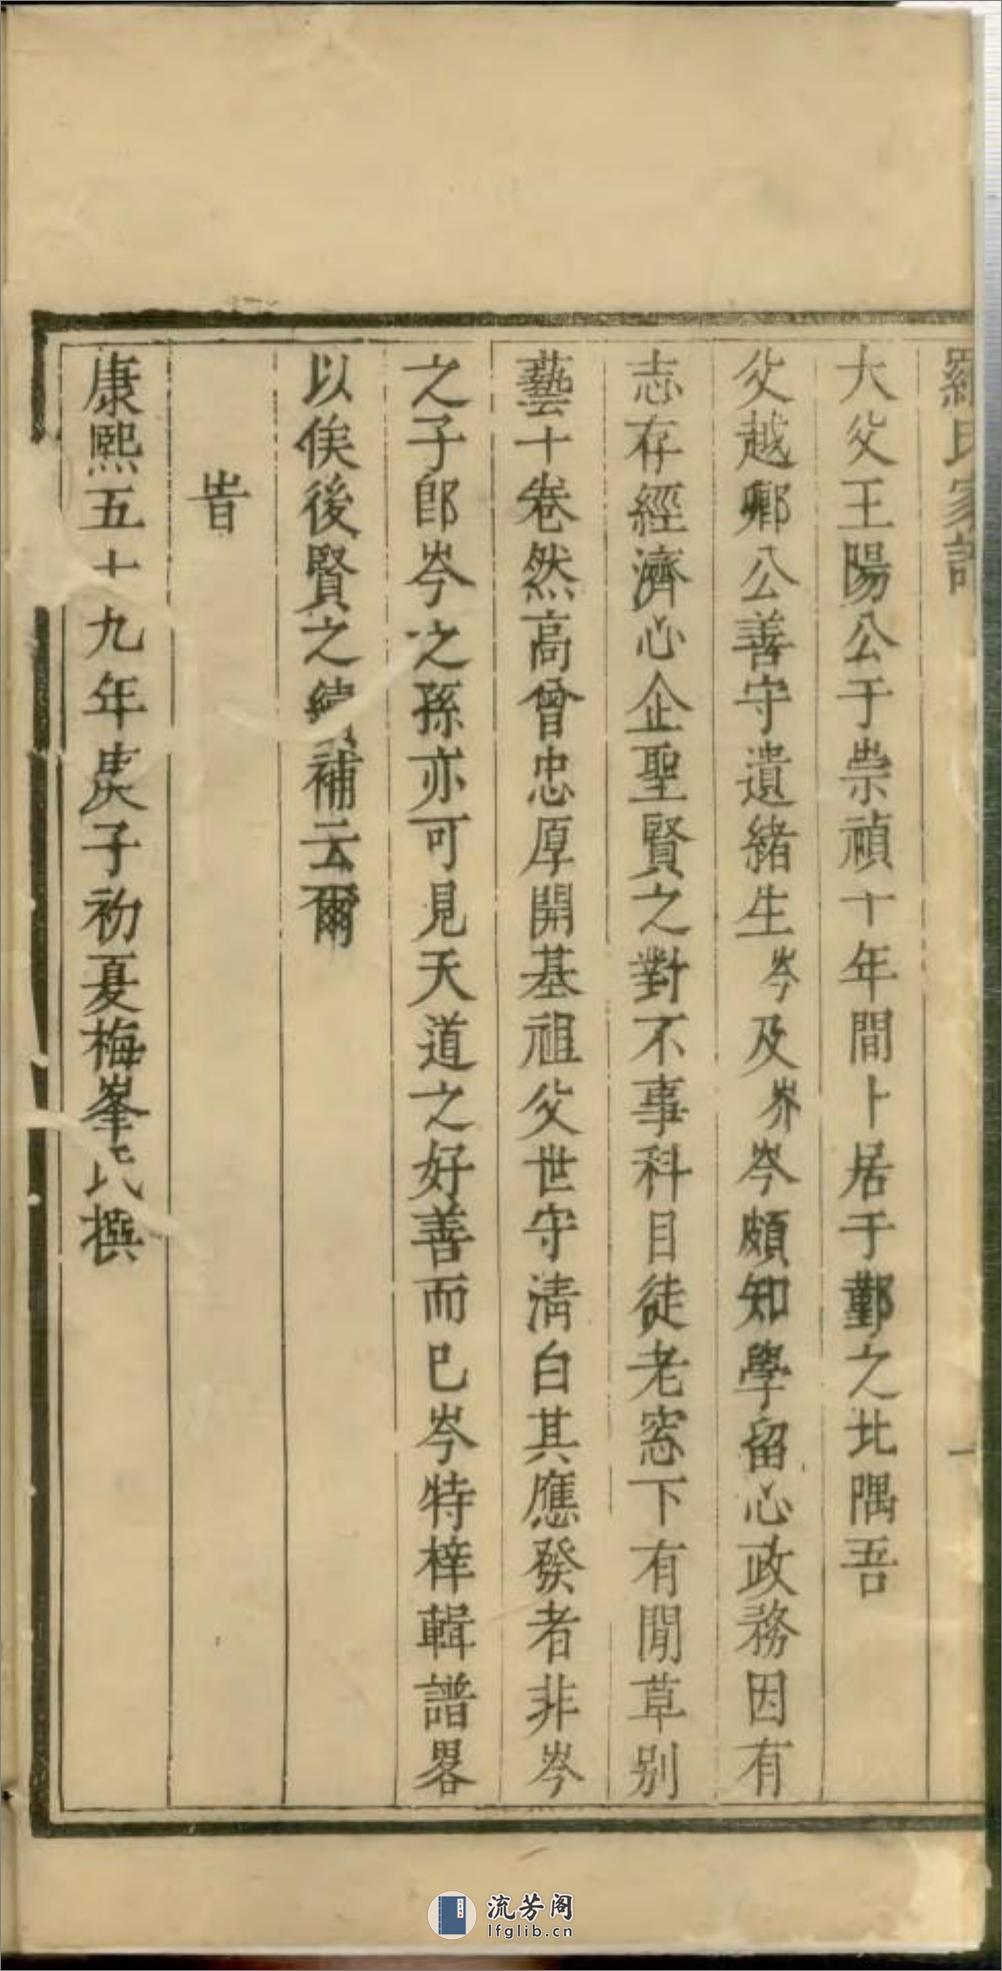 羅氏家譜
一
大父王陽公于崇禎十年間卜居于鄞之北隅吾
父越卿公善守遺緒生岑及岕岑頗知學留心政務因有
志存經濟心企聖賢之對不事科目徒老窓下有閒草别
藝十卷然高曾忠厚開基祖父世守清白其應發者非岑
之子郎岑之孫亦可見天道之好善而已岑特梓輯譜畧
以俟後賢之續補云爾
旹
康熙五十九年庚子初夏梅峯氏撰
流芳阁
lfglib.cn